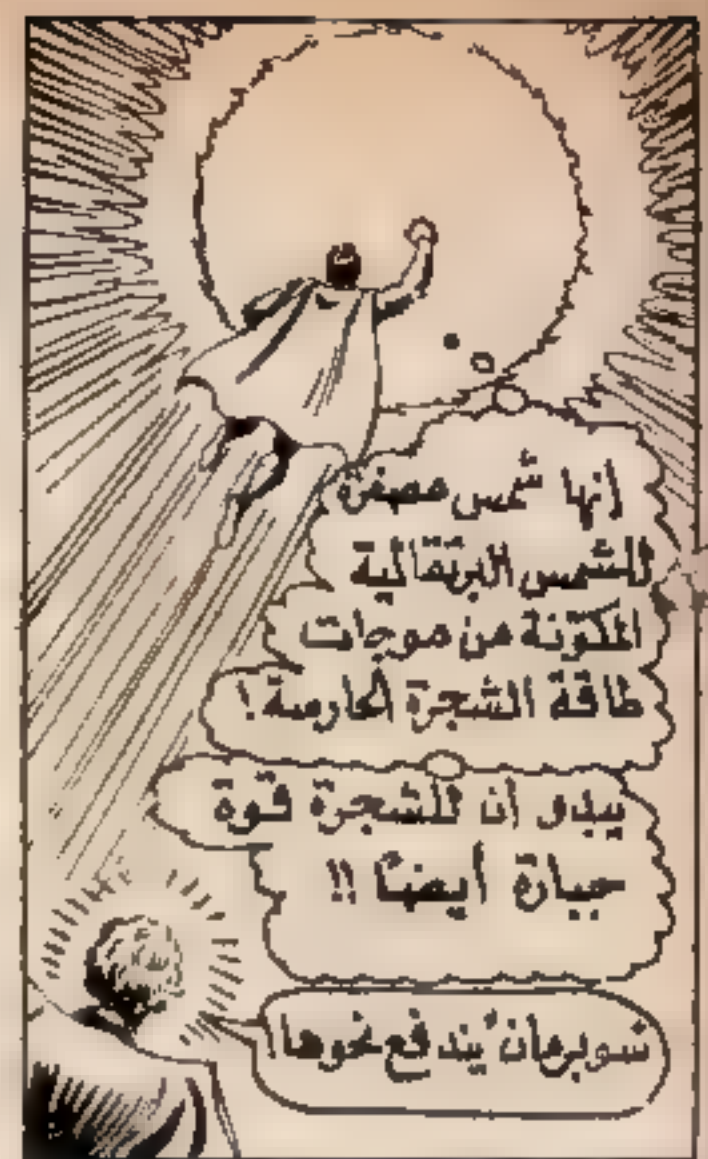 إنها شمس مصغرة
للشمس البرتقالية
المكوّنة من موجات
طاقة الشجرة الحارسة !
يبدو أن للشجرة قوة
جبارة أيضًا !!
سوبرمان يندفع نحوها